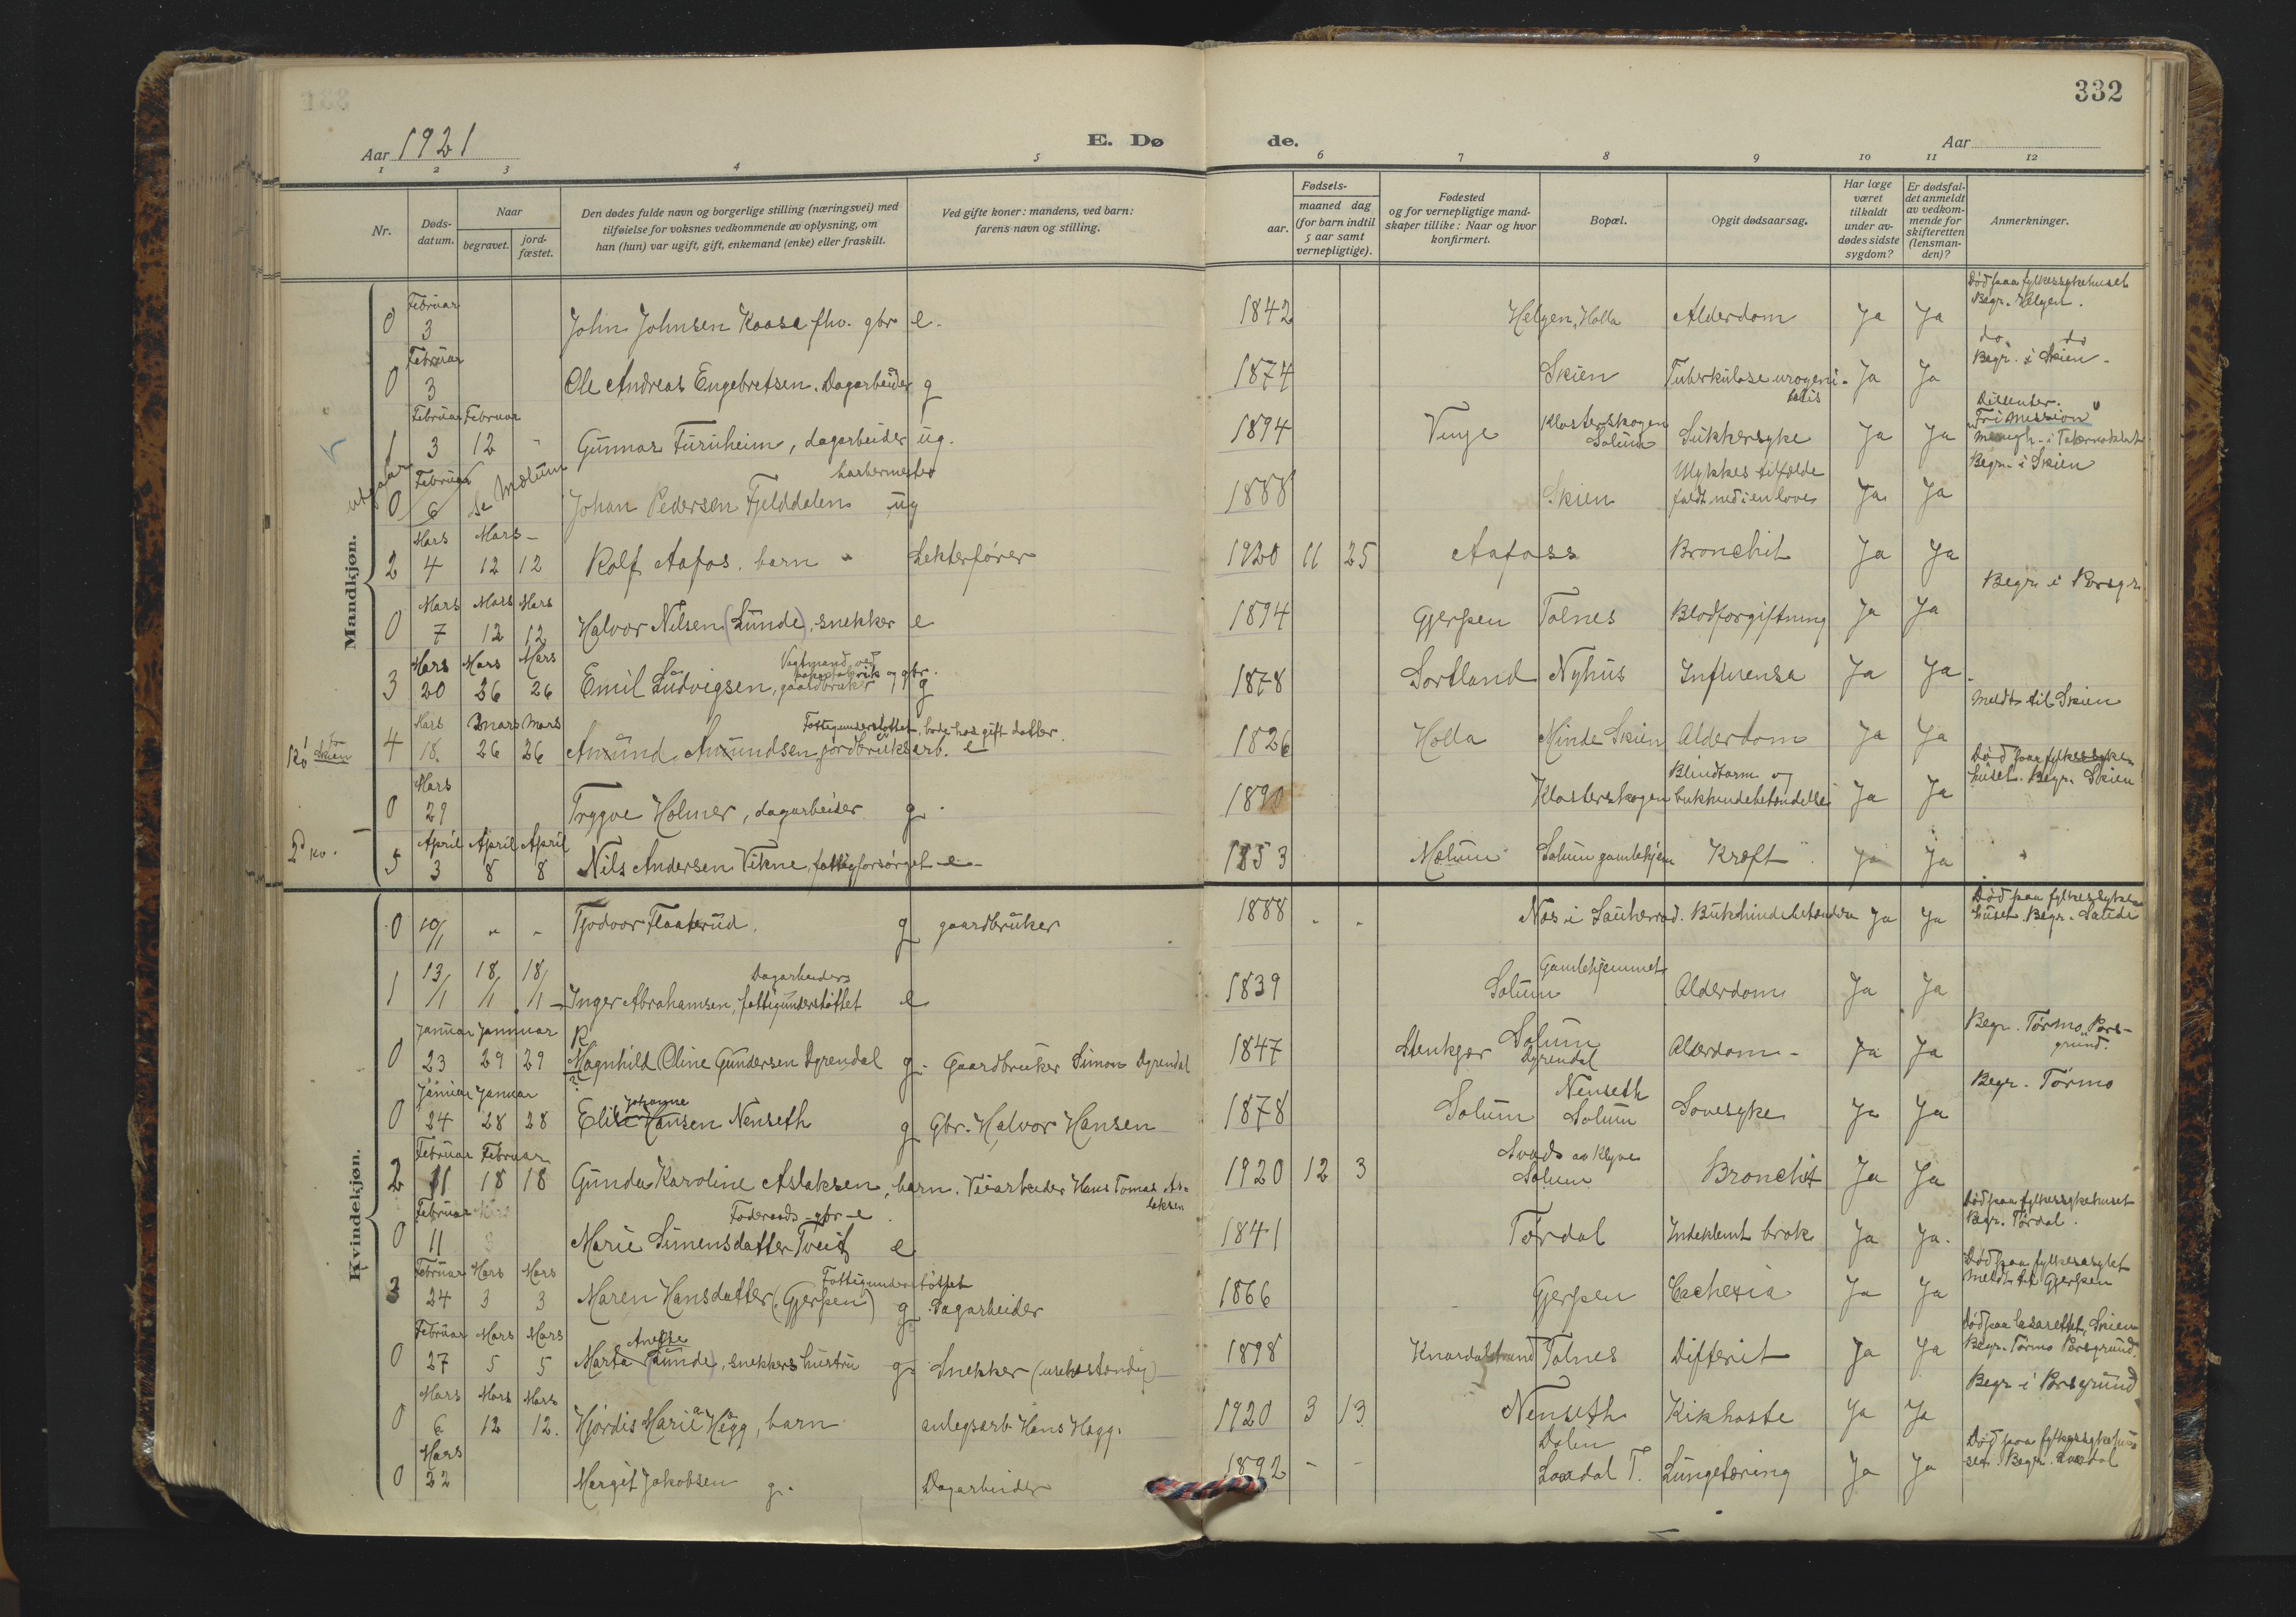 332
Aar 1921
E. Dø
de.
Aar
1 2 3 4 5 6 7 8 9 10 11 12
Nr.
Døds-
datum.
Naar
begravet.
jord-
fæstet.
Den dødes fulde navn og borgerlige stilling (næringsvei) med
tilføielse for voksnes vedkommende av oplysning, om
han (hun) var ugift, gift, enkemand (enke) eller fraskilt.
Ved gifte koner: mandens, ved barn:
farens navn og stilling.
Fødsels-
aar.
maaned dag
(for barn indtil
5 aar samt
vernepligtige).
Fødested
og for vernepligtige mand-
skaper tillike: Naar og hvor
konfirmert.
Bopæl.
Opgit dødsaarsag.
Har læge
været
tilkaldt
under av-
dødes sidste
sygdom?
Er dødsfal-
det anmeldt
av vedkom-
mende for
skifteretten
(lensman-
den)?
Anmerkninger.
Mandkjøn.
0 Februar 3 John Johnsen Kaasa fhv. gbr e. 1842 Helgen, Holla Alderdom Ja Ja Død paa fylkessykehuset
Begr. Helgen.
0 Februar 3 Ole Andreas Engebretsen. Dagarbeider g 1874 Skien Tuberkulose urogeni-
talis Ja Ja do do
Begr. i Skien.
1 Februar 3 Februar 12 - Gunnar Furuheim, dagarbeider ug. 1894 Vinje Klosterskogen
Solum Sukkersyke Ja Ja Dissenter.
"Fri Mission"
menigh. i
utgaar 0 Februar 6 se Mælum Johan Pedersen Fjelddalen barbermester ug 1888 Skien Ulykkes tilfælde
faldt ned i en love Ja Ja Begr. i Skien
2 Mars 4 Mars 12 12 Rolf Aafos, barn Lekterfører 1920 11 25 Aafoss Bronchit Ja Ja
0 Mars 7 Mars 12 Mars 12 Halvor Nilsen (Lunde), snekker e 1894 Gjerpen Tolnes Blodforgiftning Ja Ja Begr. i Porsgr.
3 Mars 20 Mars 26 Mars 26 Emil Ludvigsen, gaardbruker Vagtmand ved
og gbr. g 1878 Sortland Nyhus Influensa Ja Ja
Skien 4 Mars 18. Mars 26 Mars 26 Amund Amundsen jordbruksarb. e Fattigunderstøttet, bode hos gift datter. 1826 Holla Minde Skien Alderdom Ja Ja Meldt til Skien
0 Mars 29 Trygve Holmer, dagarbeider g. 1890 Klosterskogen Blindtarm og
bukhindebetændelse Ja Ja Død paa fylkessyke-
huset. Begr. Skien
2d kv. 5 April 3 April 8 April 8 Nils Andersen Vikne, fattigforsørget e 1853 Mælum Solum gamlehjem Kræft Ja Ja
Kvindekjøn.
0 10/1 " - Tjodvor Flaaterud. g gaardbruker 1888 - - Nes i Sauherad. Bukhindebetændelse Ja Ja Død paa fylkessyke-
huset. Begr. Saude
1 13/1 18/1 18/1 Inger Abrahamsen, fattigunderstøttet Dagarbeiders e 1839 Solum Gamlehjemmet Alderdom Ja Ja
0 Januar 23 Januar 29 29 Magnhild Oline Gundersen Dyrendal g. Gaardbruker Simon Dyrendal 1847 Stenkjær Solum
Dyrendal Alderdom - Ja Ja Begr. Tørmo, Pors-
grund.
0 Januar 24 Januar 28 28 Elise Johanne Hansen Nenseth g Gbr. Halvor Hansen 1878 Solum Nenseth
Solum Sovesyke Ja Ja Begr. Tørmo
2 Februar 11 Februar 18 18 Gunda Karoline Aslaksen, barn. Veiarbeider Hans Tomas As-
laksen 1920 12 3 av Klyve
Solum Bronchit Ja Ja
0 Februar 11 Marie Simensdatter Tveit Føderaads-gbr-e e 1841 Tørdal Indeklemt brok Ja Ja. Død paa fylkessykehuset
Begr. Tørdal.
3 Februar 24 Mars 3 Mars 3 Maren Hansdatter (Gjerpen) Fattigunderstøttet g Dagarbeider 1866 Gjerpen Cachexia Ja Ja Død paa fylkesasylet
Meldt til Gjerpen
0 Februar 27 Mars 5 Mars 5 Marta (Lunde), snekkers hustru g. Snekker 1898 Knardalstrand Tolnes Differit Ja Ja Død paa lasarettet, Skien
Begr. Tørmo Porsgrund.
0 Mars 6 Mars 12 Mars 12. Hjørdis Marie Hegg, barn anlegsarb. Hans Hægg. 1920 3 13 Nenseth Kikhoste Ja Ja Begr i Porsgrund
0 Mars 22 Margit Jakobsen g. Dagarbeider 1892 - - Dalen
Laardal T. Lungetæring Ja Ja Død paa fylkessykehu-
set. Begr. Laardal